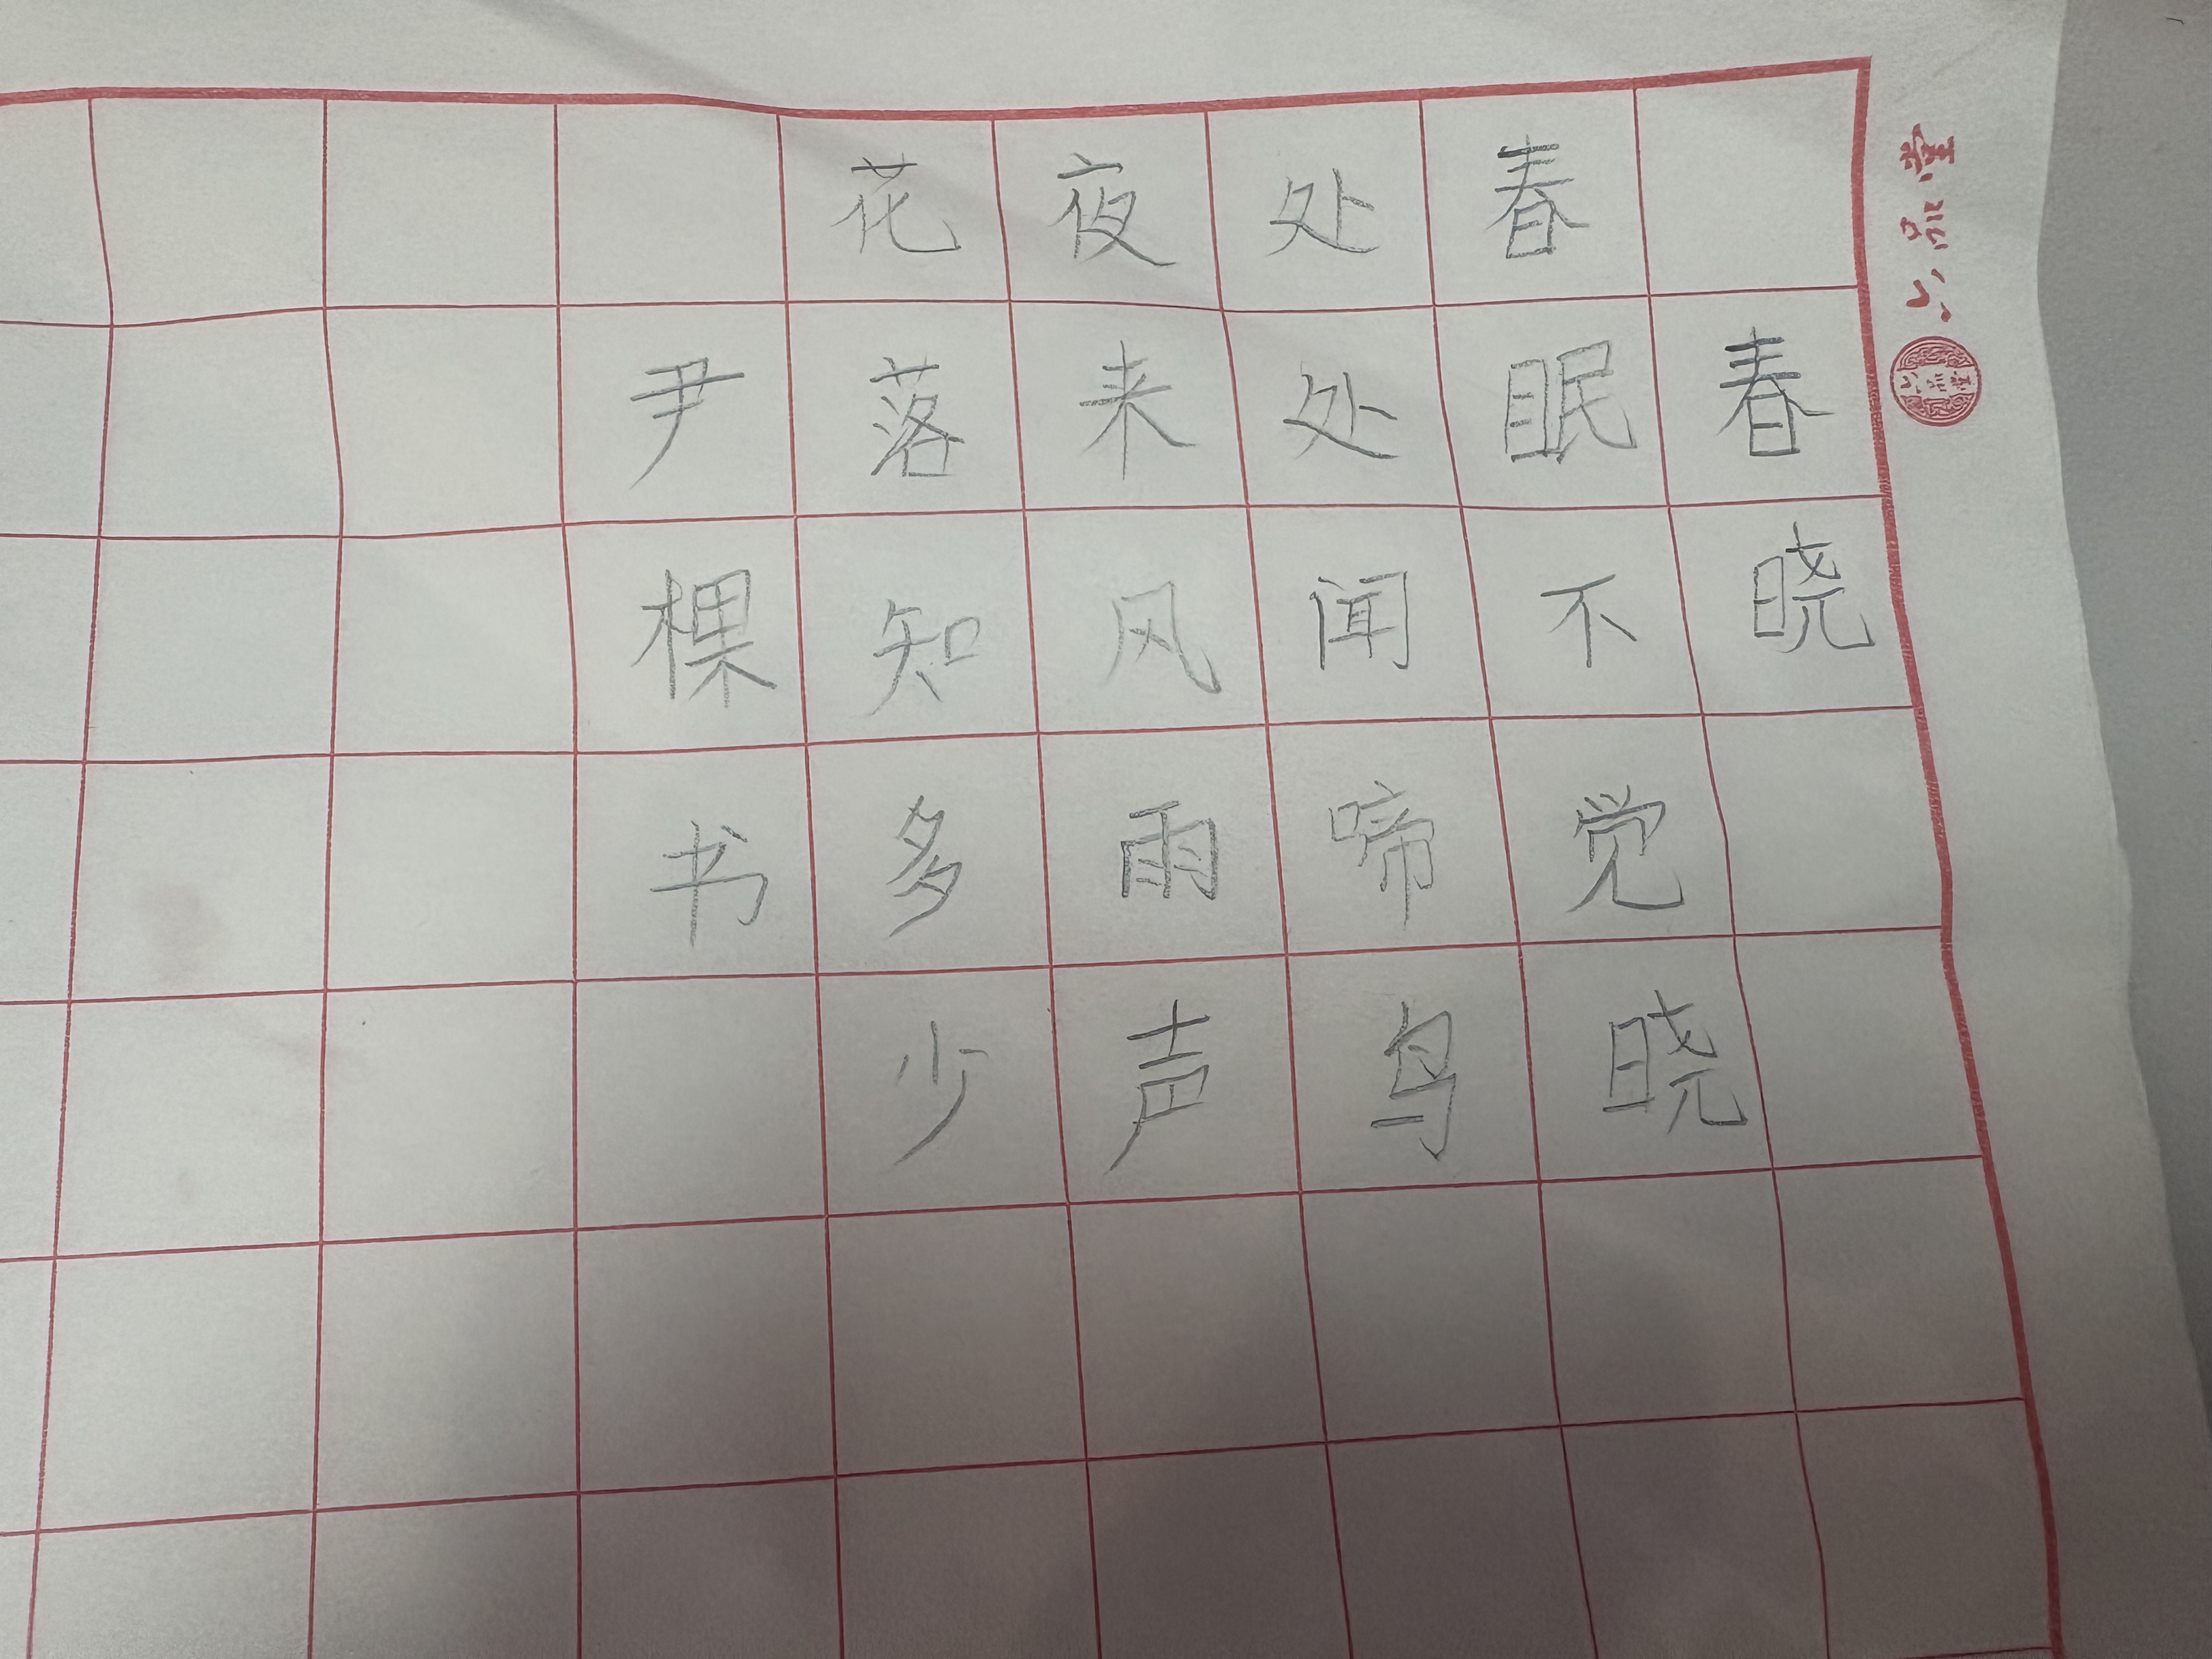 六品堂
春晓
春眠不觉晓
处处闻啼鸟
夜来风雨声
花落知多少
尹棵书